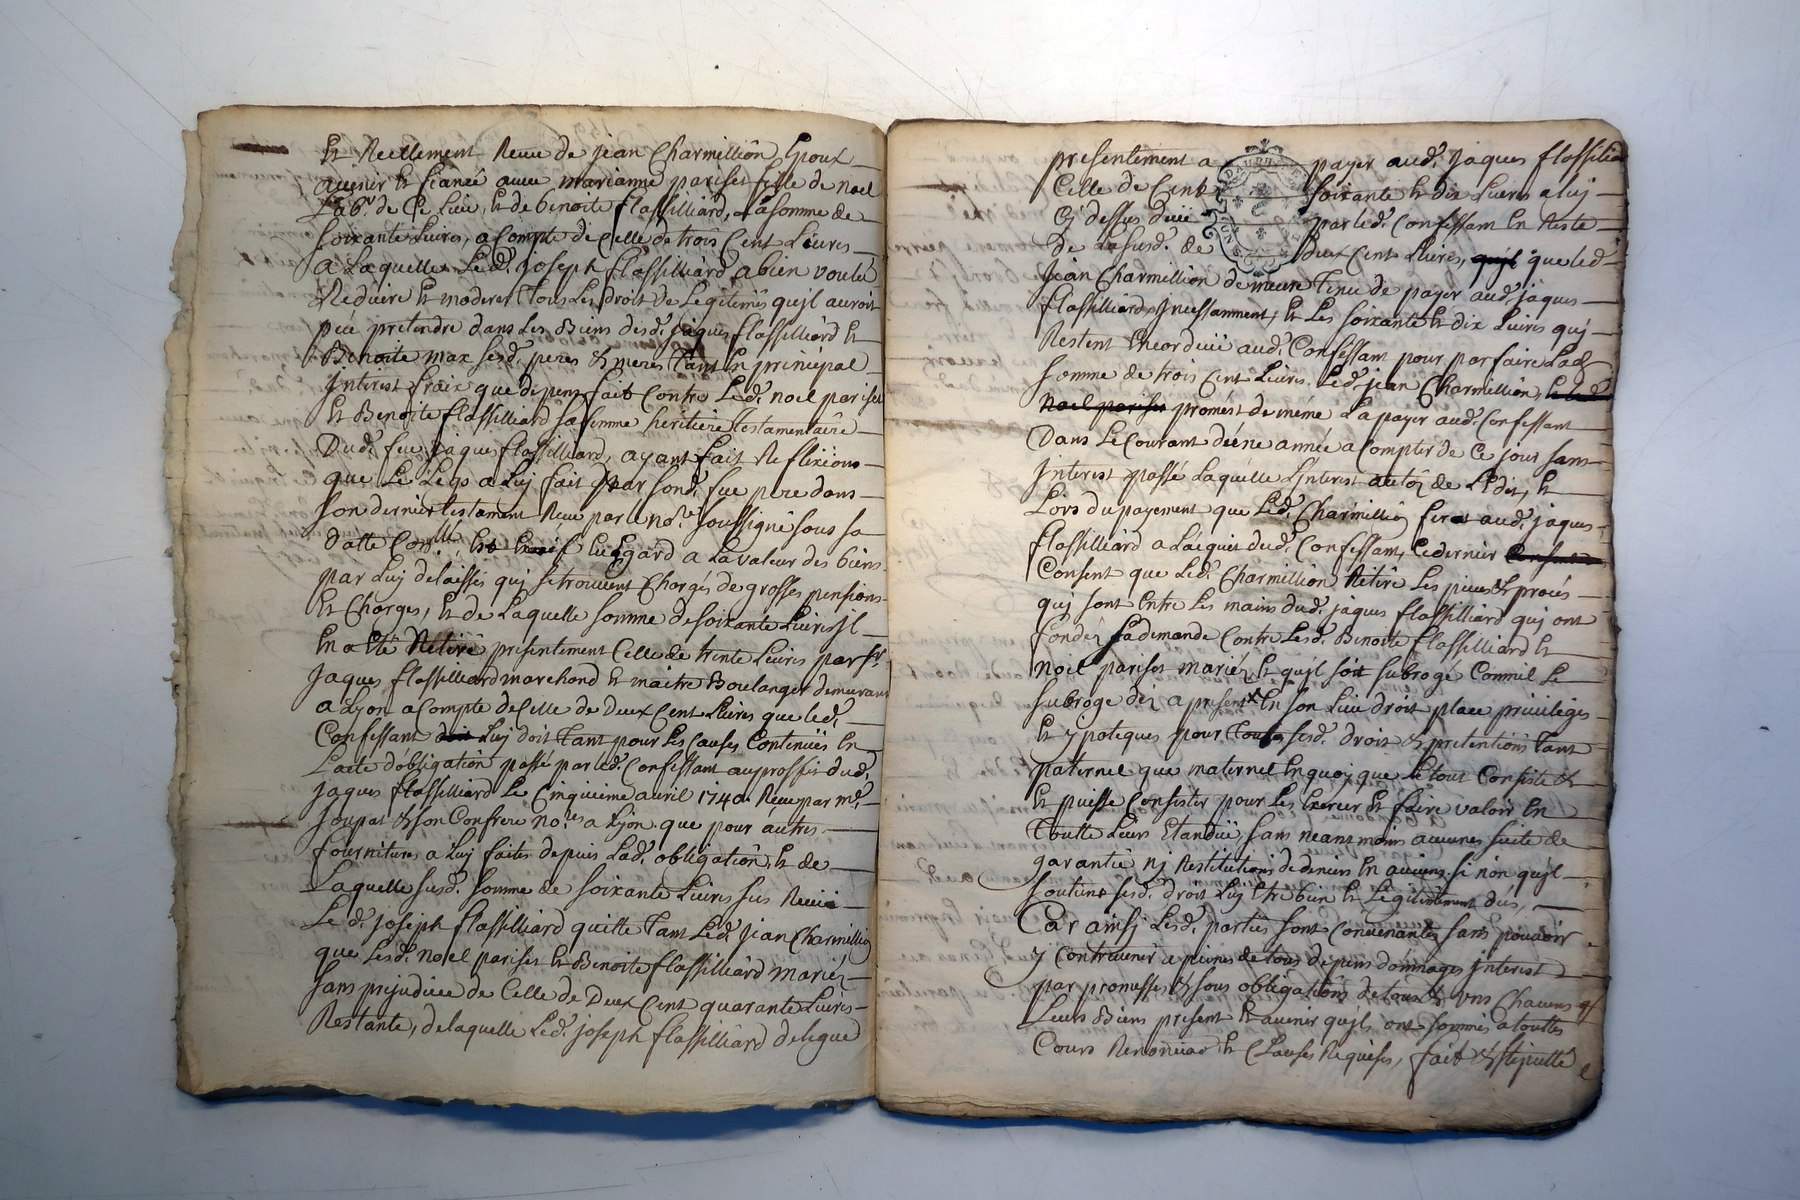 Et Reellement Receu de jean Charmilliôn Epoux
avenir Et fiancé avec marianne pariset fille de noel
Lab.r de Ce Lieu, Et de benoite flassilliârd, La somme de
soixante Livres, a Compte de Celle de trois Cent Livres
a Laquelle Led.t joseph flassilliârd a bien voulu
Reduire Et moderer Tous Les droits de Legitimes qujl auroit
peu pretendre dans Les Biens desd.ts jaques flassilliârd Et
Benoite max sesd.ts peres & meres Tant En principal
Interist fraix que depens fait Contre Led.t noel pariset
Et Benoite flassilliard sa femme heritiere Testamentaire
Dud.t feu jaques flassilliard, ayant fait Reflexions
que Le Legs a Luy fait par sond.t feu pere dans
son dernier testament Receu par le no.re soussigné sous sa
datte Egard a La valeur des biens
par Luy delaissés quj se trouvent Chargés de grosses pensions
Et Charges, Et de Laquelle somme de soixante Livres jl
En a Eté Retiré presentement Celle de trente Livres par sr
Jaques flassilliard marchand Et maitre Boulanger demeurant
a Lyon a Compte de Celle de Deux Cent Livres que led.t
Confessant doit Luy doit Tant pour Les Causes Contenües En
L'acte d'obligation passé par led.t Confessant au proffit dud.t
jaques flassilliard Le Cinquieme avril 1740. Receu par m.e
soupat & son Confrere no.res a Lyon que pour autres
fournitures a Luy faites depuis Lad.te obligatiôn, Et de
Laquelle susd.te somme de soixante Livres sus Receüe
Le d.t joseph flassilliârd quitte Tant Led.t jean Charmilliôn
que Lesd.ts noel pariset Et Benoite flassilliârd mariés
sans prejudice de Celle de Deux Cent quarante Livres
Restante, de laquelle Led.t joseph flassilliârd delegue
presentement a payer aud.t jaques flassilliard
Celle de Cent soixante Et dix Livres a luj
Cy dessus düe par led.t Confessant En Reste
de La susd.te de Deux Cent Livres, qujl que led.t
jean Charmillion demeure Tenu de payer aud.t jaques
flassilliard Incessamment, Et Les soixante Et dix Livres quj
Restent Encor düe aud.t Confessant pour parfaire Lad.te
somme de trois Cent Livres. Led.t jean Charmilliôn, Et led.t
noel pariset promést de même La payer aud.t Confessant
Dans Le Courant d'une année a Compter de Ce jour sans
Interest passé Laquelle L'interest au tôz de L'Edit, Et
Lors du payement que Led.t Charmilliôn fera aud.t jaques
flassilliârd a L'acquit dud.t Confessant, Ce dernier Consent
Consent que Led.t Charmilliôn Retire Les pieces & procés
quj sont Entre Les mains dud.t jaques flassilliard quj ont
fondés sa demande Contre Lesd.ts Benoite flassilliard Et
noel pariset mariés, Et qu'jl soit subrogé Comme Le
subroge dez a present En son Lieu droit place privileges
Et ypoteques pour Tous sesd.ts droits & pretentions Tant
paternel que maternel En quoy que Le tout Consiste &
Et puisse Consister pour Les Exercer Et faire valoir En
Toutte Leurs Etandüe, sans neantmoins aucunes suite de
garantie nj Restitutions de deniers En aucuns, si non qujl
soutient sesd.ts droits Luj Etre bien Et Legitimement dûs,
Car ainsj Lesd.tes parties sont Convenantes sans pouvoir
y Contrevenir a peines de tous depens dommages Interest
par promesses & sous obligations de tous & uns Chacuns
Leurs Biens present Et avenir qujls ont sommis a touttes
Cours Renonciaô Et Clauses Requises, fait & stipullé